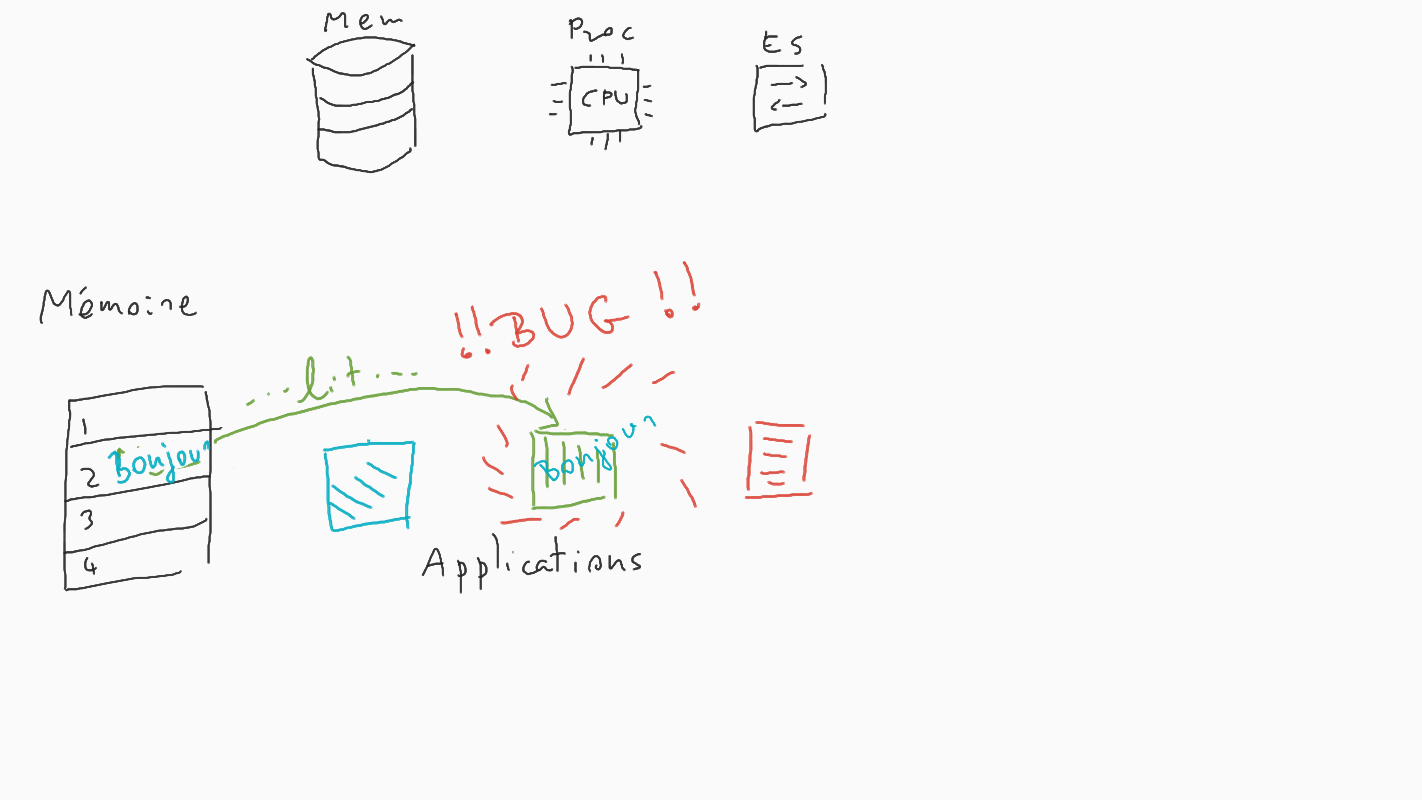 Mem
Proc
ES
CPU
Mémoire
!! BUG !!
...lit...
1
2 Bonjour
Bonjour
3
4
Applications